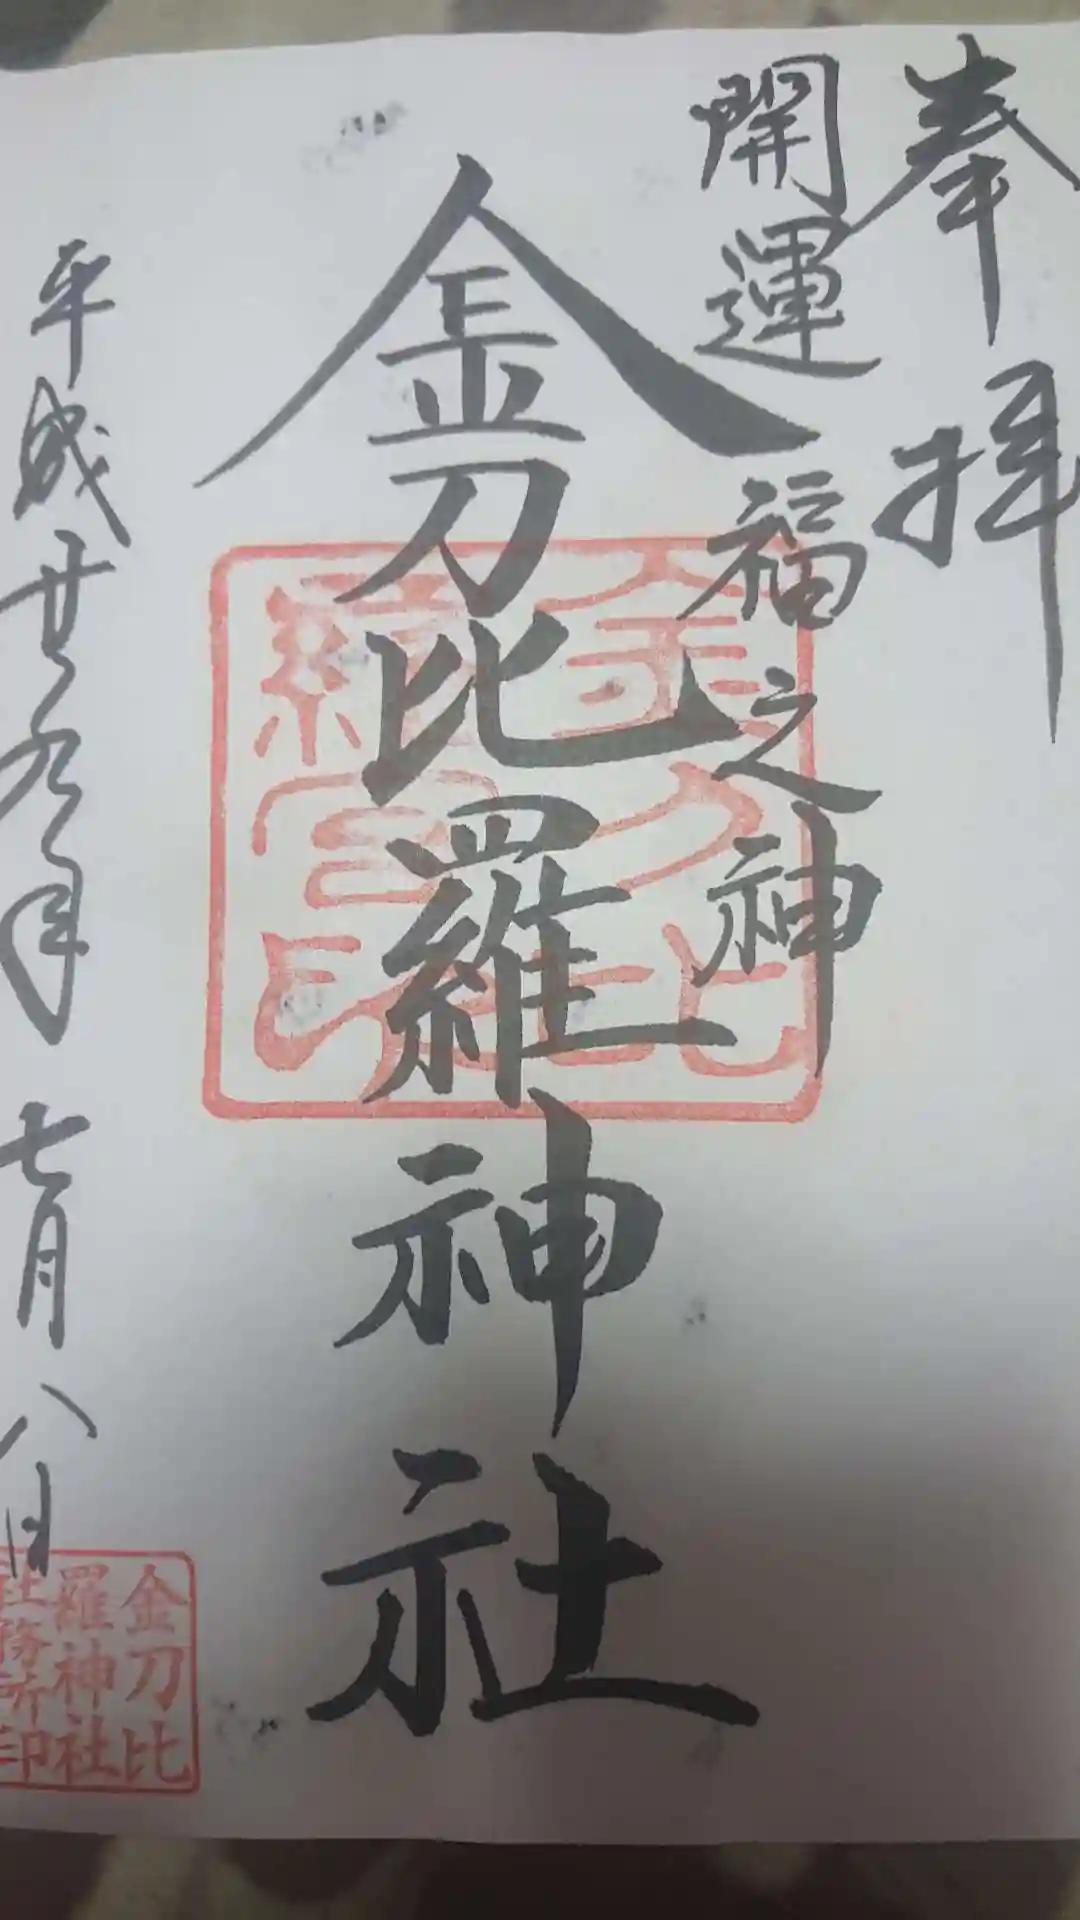 奉拝
開運福之神
金刀比羅神社
平成廿九年
七月八日
金刀比
羅神社
社務所印